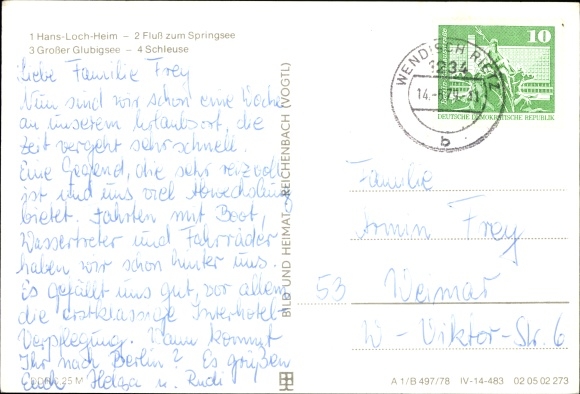 1 Hans-Loch-Heim – 2 Fluß zum Springsee
3 Großer Glubigsee – 4 Schleuse
Liebe Familie Frey
Nun sind wir schon eine Woche
an unserem Urlaubsort, die
Zeit vergeht sehr schnell.
Eine Gegend, die sehr reizvoll
ist und uns viel Abwechslung
bietet. Fahrten mit Boot,
Wassertreter und Fahrräder
haben wir schon hinter uns.
Es gefällt uns gut, vor allem
die erstklassige Interhotel-
Verpflegung. Wann kommt
Ihr nach Berlin? Es grüßen
Euch Helga u. Rudi
BILD UND HEIMAT REICHENBACH (VOGTL)
WENDISCH RIETZ
1234
b
10
DEUTSCHE DEMOKRATISCHE REPUBLIK
Familie
Armin Frey
53 Weimar
W-Viktor-Str. 6
A 1/B 497/78 IV-14-483 02 05 02 273